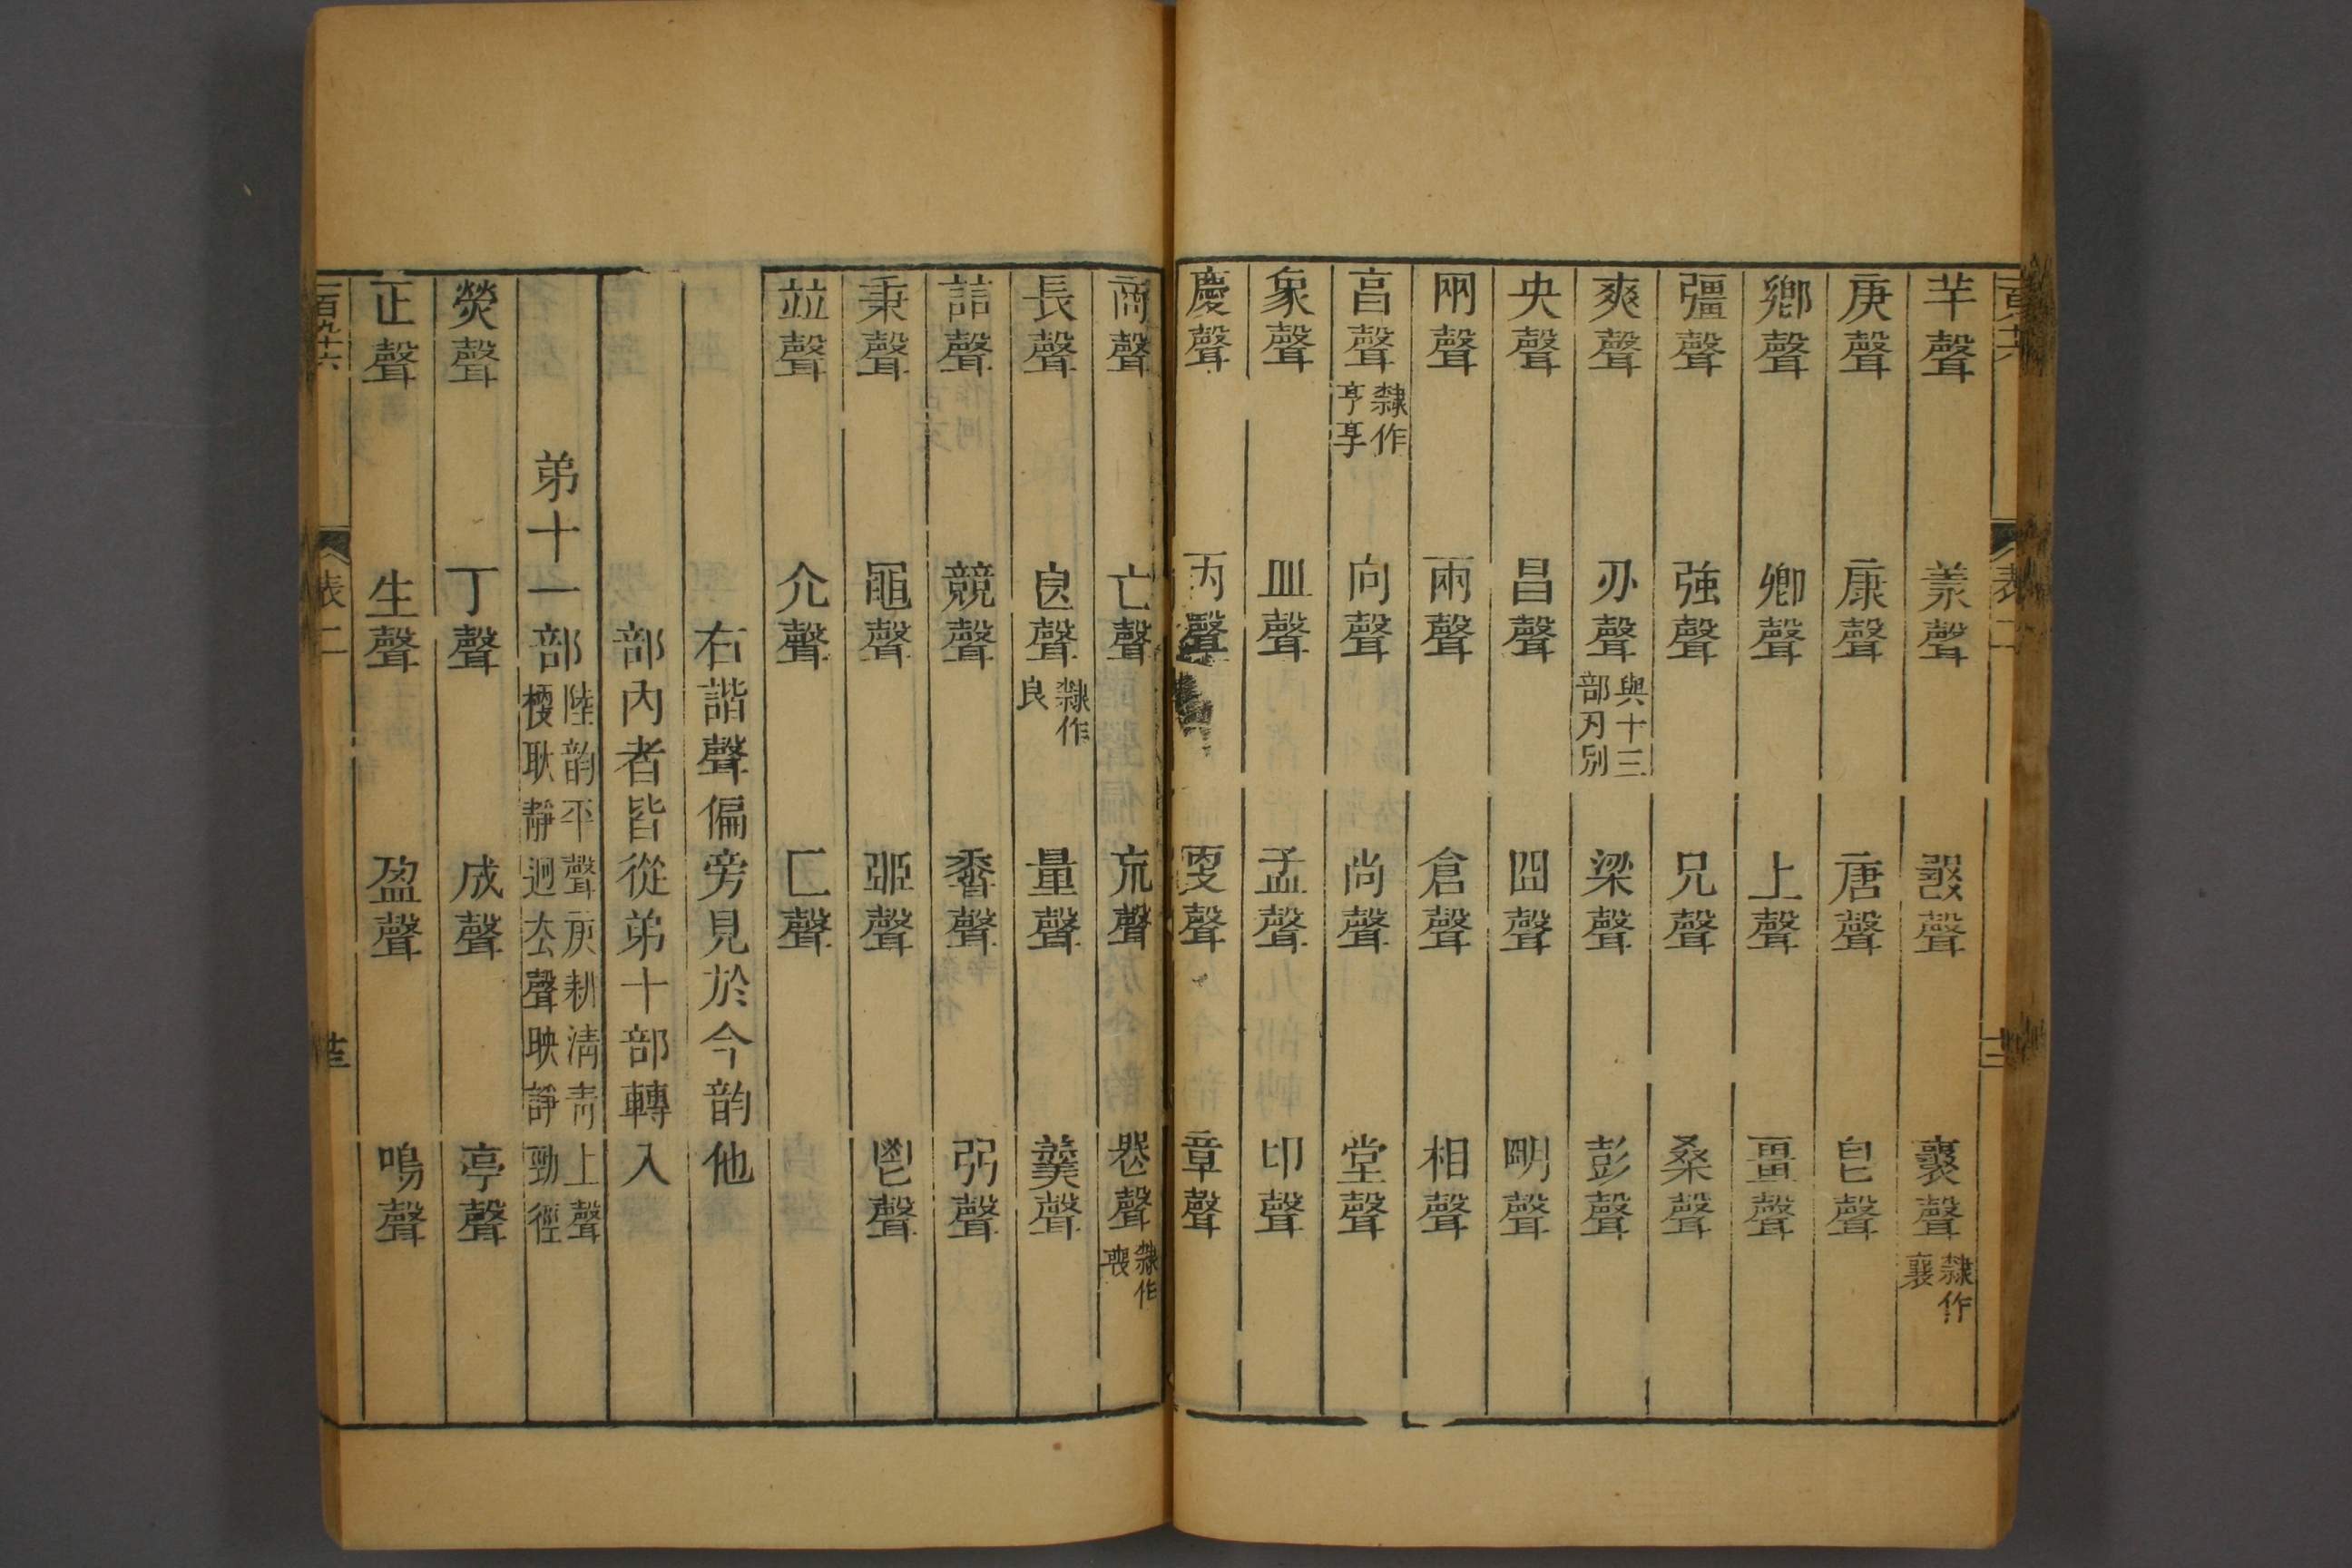 羊聲 羕聲 㗊聲 㐮聲 隸作襄
庚聲 康聲 唐聲 皀聲
鄉聲 卿聲 上聲 畺聲
彊聲 強聲 兄聲 桑聲
爽聲 刅聲 與十三部刃别 梁聲 彭聲
央聲 昌聲 囧聲 朙聲
网聲 兩聲 倉聲 相聲
亯聲 隸作亨享 向聲 尚聲 堂聲
象聲 皿聲 孟聲 印聲
慶聲 丙聲 㪅聲 章聲
商聲 亡聲 巟聲 喪聲 隸作喪
長聲 㫐聲 隸作良 量聲 羹聲
誩聲 競聲 香聲 弜聲
秉聲 黽聲 𨛜聲 鬯聲
竝聲 介聲 匚聲
右諧聲偏旁見於今韵他
部内者皆從弟十部轉入
弟十一部 陸韵平聲庚耕清青上聲梗耿靜迥去聲映諍勁徑
熒聲 丁聲 成聲 亭聲
正聲 生聲 盈聲 鳴聲
百九十六 表二